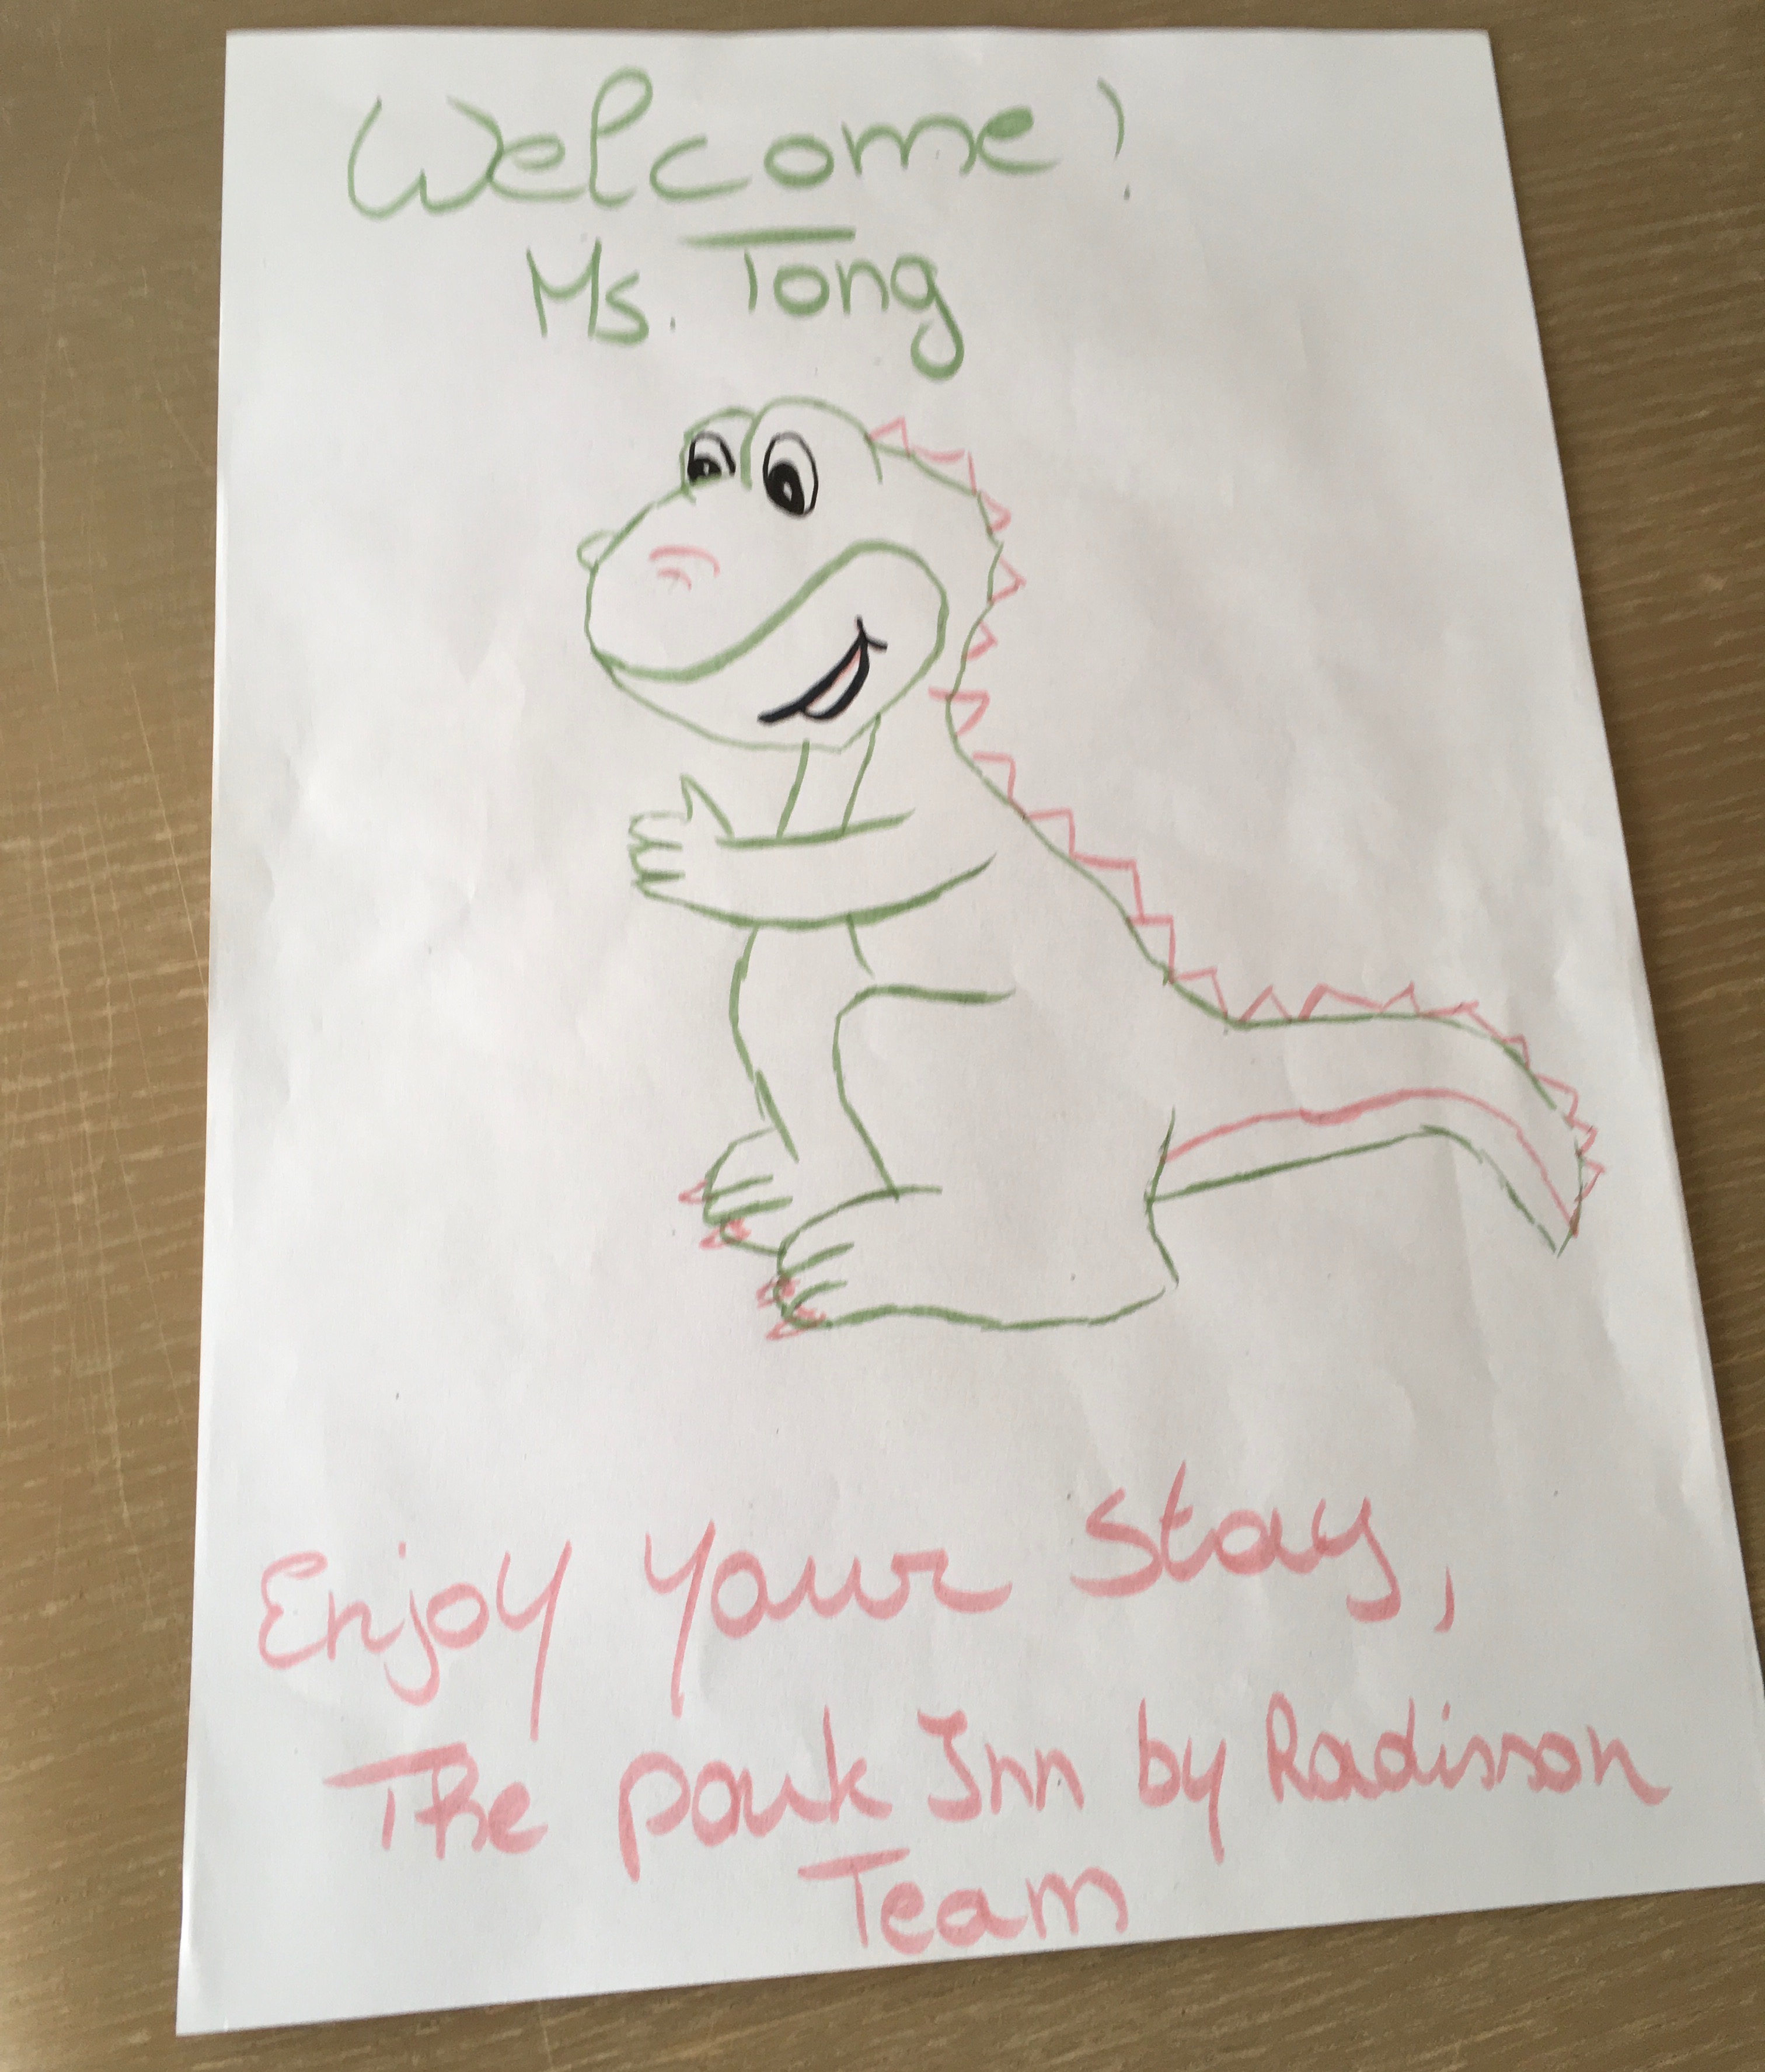 Welcome!
Ms. Tong
Enjoy your stay,
The park Inn by Radisson
Team